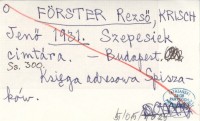 FÖRSTER Rezső, KRISCH
Jenő 1931. Szepesiek
cimtára. — Budapest.
Ss. 300.
Księga adresowa Spisza-
ków.